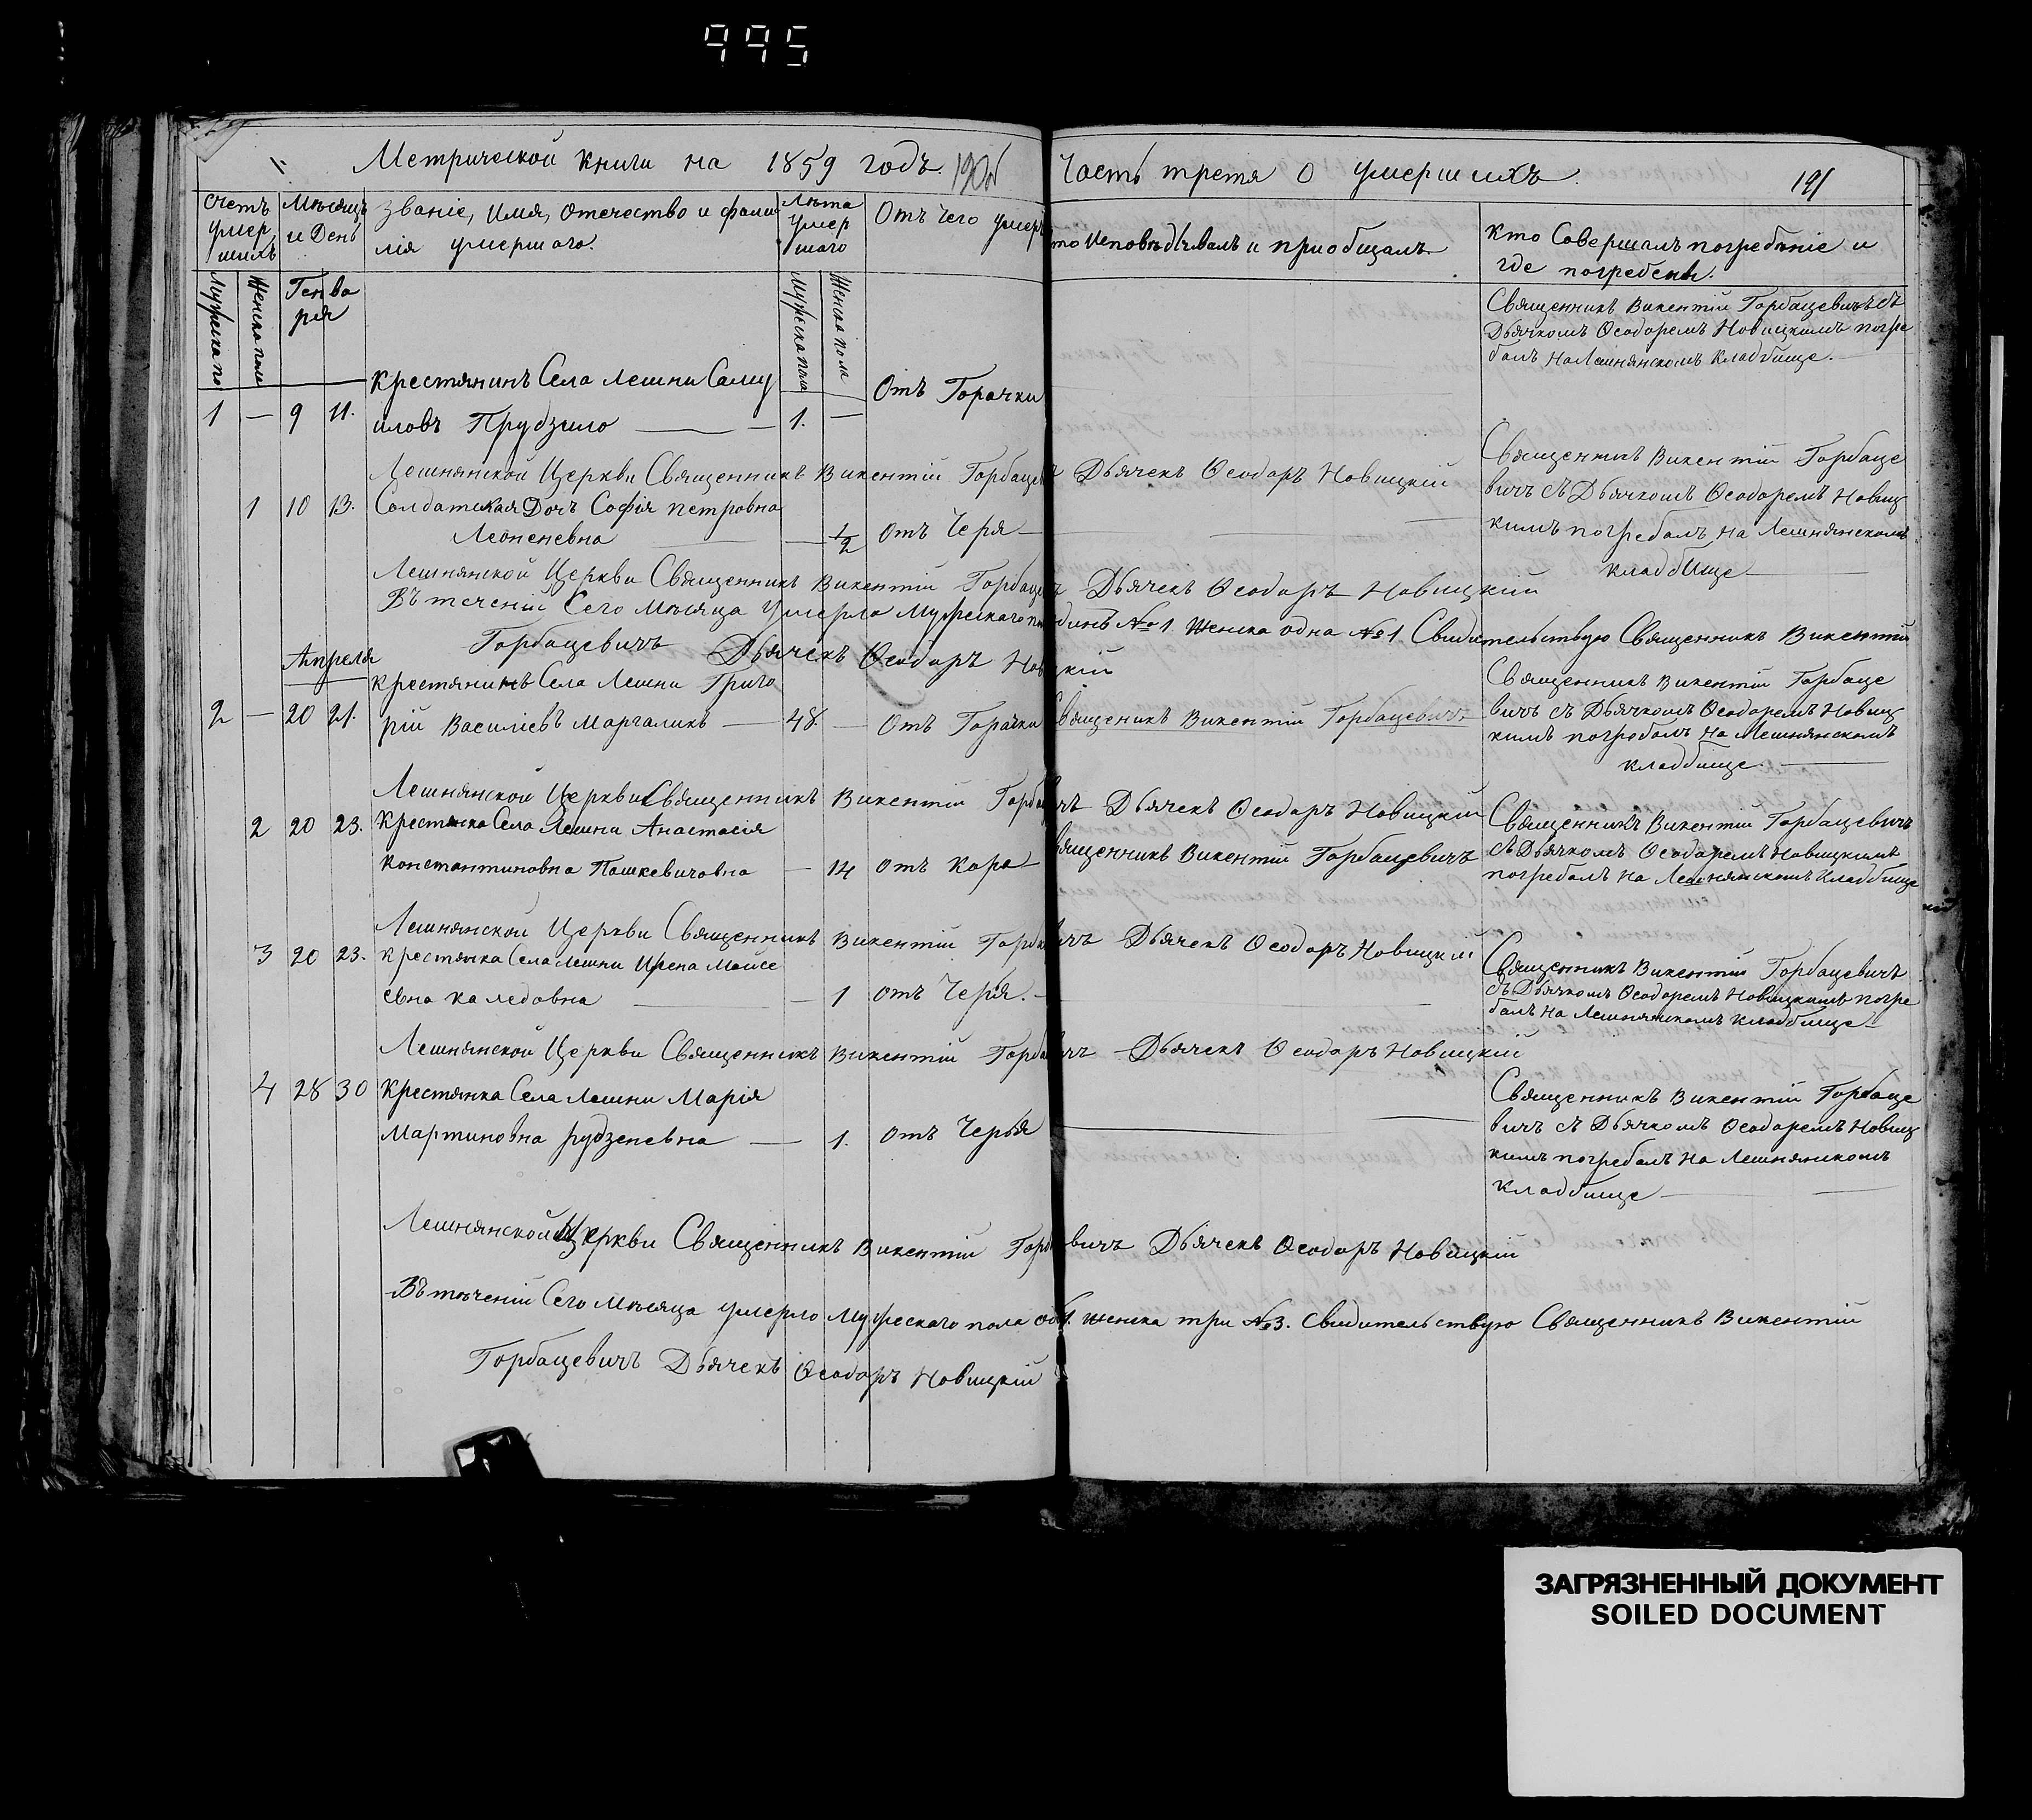 995
Метрической книги на 1859 годъ.
Часть третя о умершихъ.
191
Счетъ умершихъ
Мѣсяцъ и День
Званіе, Имя, Отечество и фамилія умершаго.
Лѣта умершаго
Отъ Чего умеръ
то Исповѣдывалъ и приобщалъ
Кто Совершалъ погребѣніе и
где погребены.
Генваря
Священникъ Викентій Горбацевичъ съ
Дьячкомъ Ѳеодоремъ Новицкимъ погре
балъ на Лешнянскомъ Кладбище.
Крестянинъ Села Лешни Саму
1 — 9 11. иловъ Прудзило — 1. — Отъ Горачки
Лешнянской Церкви Священникъ Викентій Горбацев Дьячекъ Ѳеодоръ Новицкій
1 10 13. Солдатская Дочь Софія Петровна
Леоненевна — 1/2 Отъ Черя
Священникъ Викентій Горбаце
вичъ съ Дьячкомъ Ѳеодоремъ Новиц
кимъ погребалъ на Лешнянскомъ
кладбище
Лешнянской Церкви Священникъ Викентій Горбацев Дьячекъ Ѳеодоръ Новицкій
Въ теченій Сего Мѣсяца умерло Мужескаго по динъ №1 Женска одна №1 Свидительствую Священникъ Викентій
Горбацевичъ Дьячекъ Ѳеодоръ Новицкій
Апреля
Крестянинъ Села Лешни Григо
2 — 20 21. рій Василіевъ Маргаликъ — 48. — Отъ Горачки Священикъ Викентій Горбацевичъ
Священникъ Викентій Горбаце
вичъ съ Дьячкомъ Ѳеодоремъ Новиц
кимъ погребалъ на Лешнянскомъ
кладбище.
Лешнянской Церкви Священникъ Викентій Горбацевичъ Дьячекъ Ѳеодоръ Новицкій
2 20 23. Крестянка Села Лешни Анастасія
Константиновна Пашкевичовна — 14 Отъ Кора Священникъ Викентій Горбацевичъ
Священникъ Викентій Горбацевичъ
съ Дьячкомъ Ѳеодоремъ Новицкимъ
погребалъ на Лешнянскомъ Кладбище
Лешнянской Церкви Священникъ Викентій Горбацевичъ Дьячекъ Ѳеодоръ Новицкій
3 20 23. Крестянка Села Лешни Ирена Мойсе
евна Каледовна — 1 Отъ Черя.
Священникъ Викентій Горбацевичъ
съ Дьячкомъ Ѳеодоремъ Новицкимъ погре
балъ на Лешнянскомъ кладбище
Лешнянской Церкви Священникъ Викентій Горбацевичъ Дьячекъ Ѳеодоръ Новицкій
4 28 30 Крестянка Села Лешни Марія
Мартиновна Рудзеневна — 1. Отъ Черья
Священникъ Викентій Горбаце
вичъ съ Дьячкомъ Ѳеодоремъ Новиц
кимъ погребалъ на Лешнянскомъ
Кладбище
Лешнянской Церкви Священникъ Викентій Горбацевичъ Дьячекъ Ѳеодоръ Новицкій
Въ теченій Сего Мѣсяца умерло Мужескаго пола 1. женска три №3. Свидительствую Священникъ Викентій
Горбацевичъ Дьячекъ Ѳеодоръ Новицкій
ЗАГРЯЗНЕННЫЙ ДОКУМЕНТ
SOILED DOCUMENT